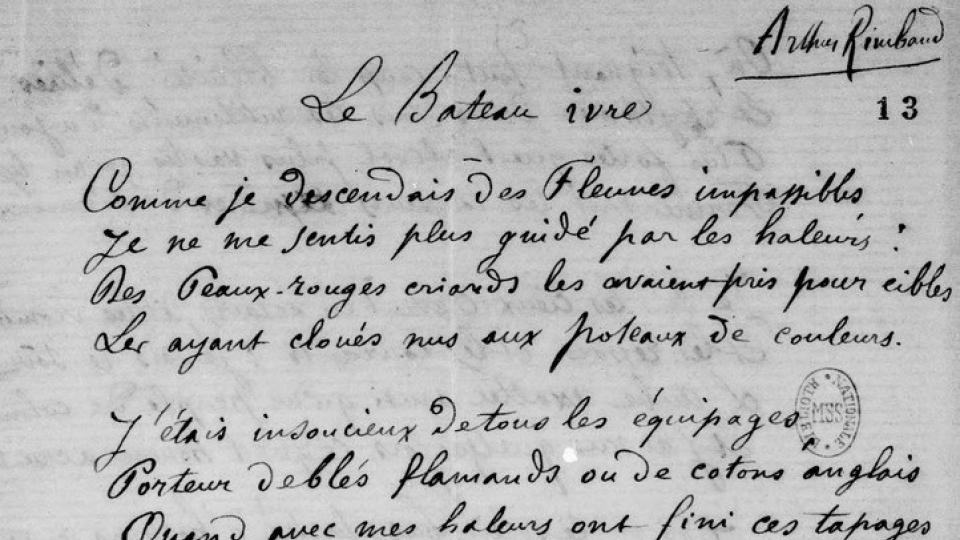 Arthur Rimbaud
13
Le Bateau ivre
Comme je descendais des Fleuves impassibles
Je ne me sentis plus guidé par les haleurs :
Des Peaux-rouges criards les avaient pris pour cibles
Les ayant cloués nus aux poteaux de couleurs.
J'étais insoucieux de tous les équipages
Porteur de blés flamands ou de cotons anglais
Quand avec mes haleurs ont fini ces tapages
BIBLIOTH. NATIONALE MSS